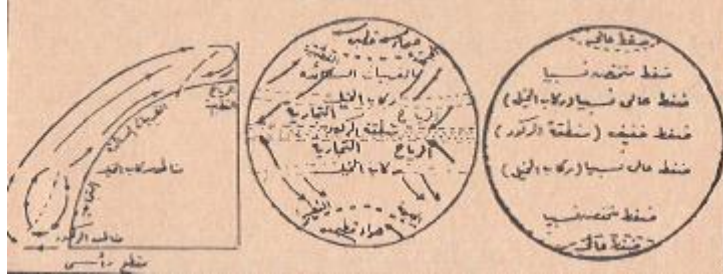 ضغط عالى
ضغط منخفض نسبيا
ضغط عالى نسبيا (ركاب الخيل)
ضغط خفيف (منطقة الركود)
ضغط عالى نسبيا (ركاب الخيل)
ضغط منخفض نسبيا
ضغط عالى
هواء قطبى
الغربيات السائدة
ركاب الخيل
الرياح التجارية
منطقة الركود
الرياح التجارية
ركاب الخيل
هواء قطبى
الرياح
القطبية
الغربيات السائدة
مناطق ركاب الخيل
التجارية
مناطق الركود
مقطع رأسى